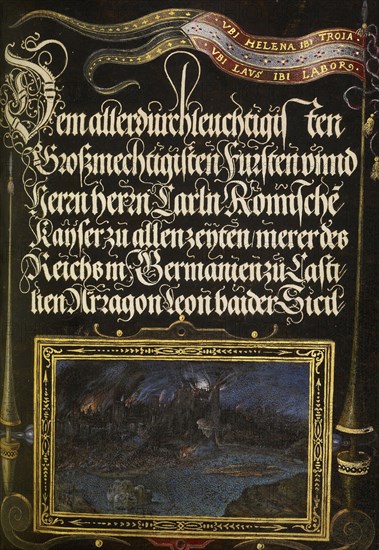 VBI HELENA IBI TROIA
VBI LAVS IBI LABOR
Dem allerdurchleuchtigisten
Großmechtigisten Fursten vnnd
Herrn herrn Carln Römischē
Kayser zu allen zeyten / merer des
Reichs in Germanien zu Casti
lien Arragon Leon baider Sicil